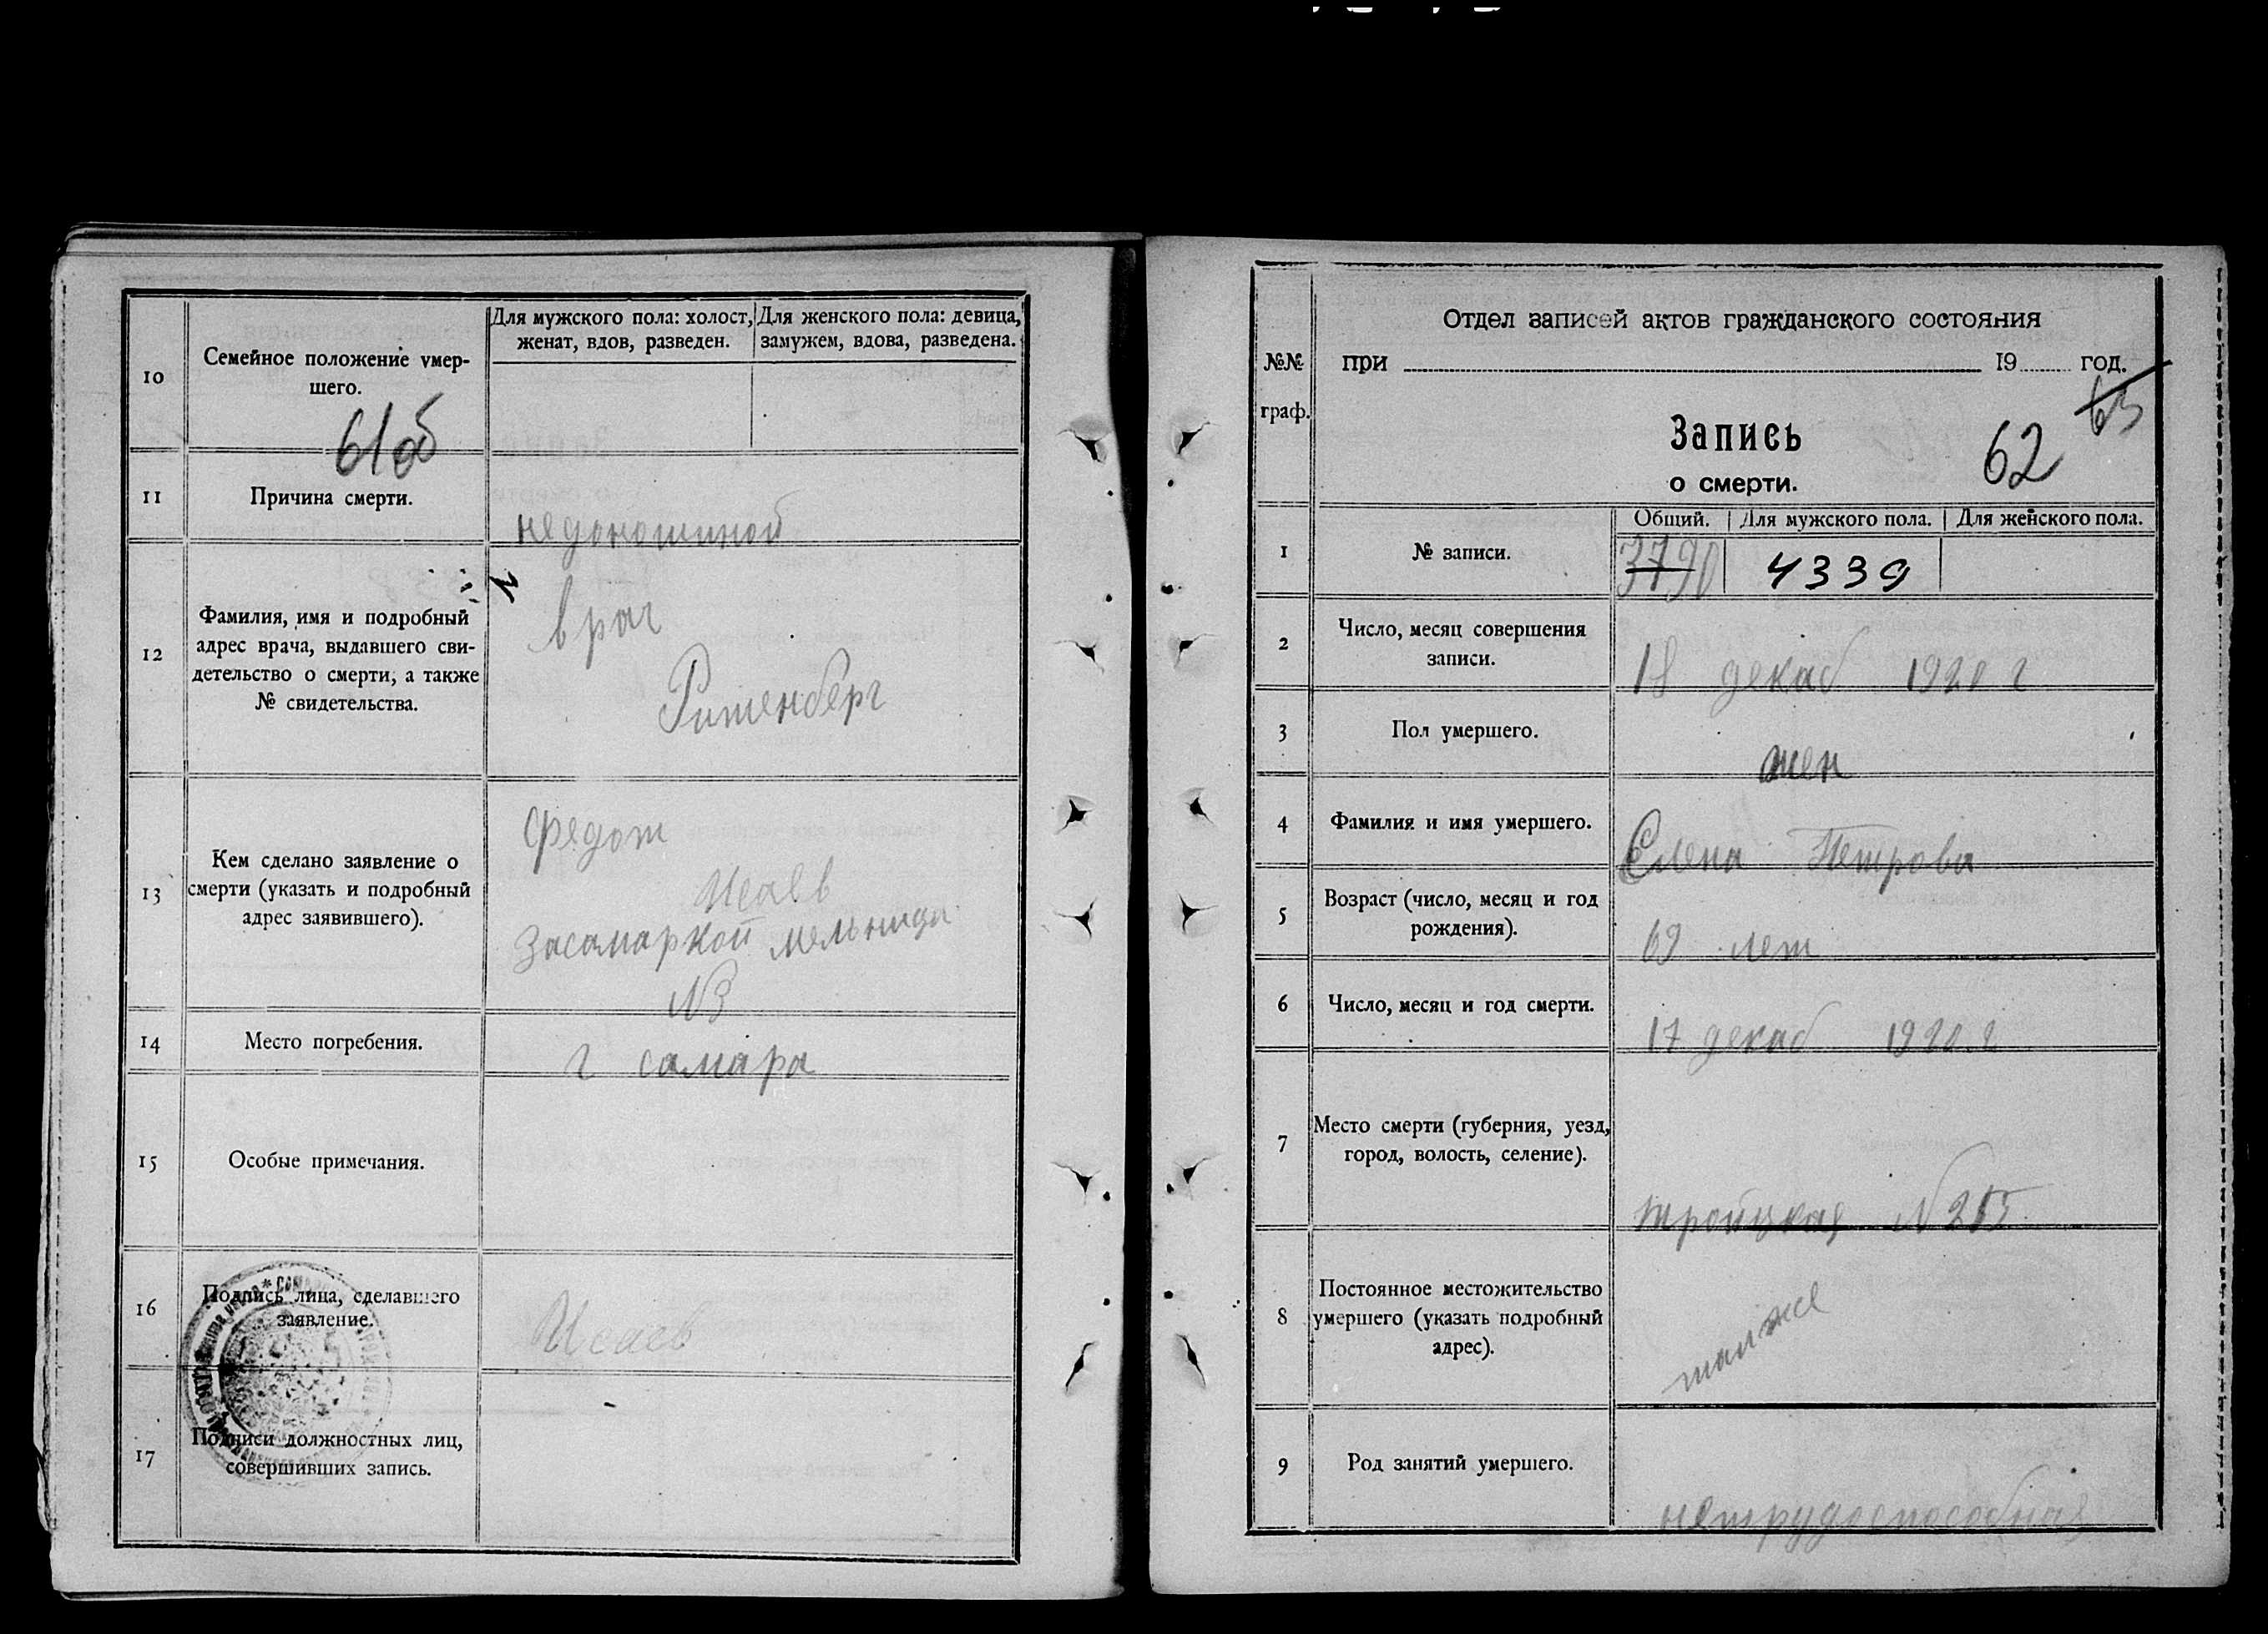 10
Семейное положение умер-
шего.
Для мужского пола: холост,
женат, вдов, разведен.
Для женского пола: девица,
замужем, вдова, разведена.
61об
11
Причина смерти.
недоношиной
12
Фамилия, имя и подробный
адрес врача, выдавшего сви-
детельство о смерти, а также
№ свидетельства.
врач
Ритенберг
13
Кем сделано заявление о
смерти (указать и подробный
адрес заявившего).
Федот
Исаев
Засамаркой мельница
N3
14
Место погребения.
г самара
15
Особые примечания.
16
Подпись лица, сделавшего
заявление.
Исаев
17
Подписи должностных лиц,
совершивших запись.
№№
граф.
Отдел записей актов гражданского состояния
при 19 год.
63
Запись
62
о смерти.
1
№ записи.
Общий. Для мужского пола. Для женского пола.
3790 4339
2
Число, месяц совершения
записи.
18 декаб 1920 г
3
Пол умершего.
жен
4
Фамилия и имя умершего.
Елена Петрова
5
Возраст (число, месяц и год
рождения).
69 лет
6
Число, месяц и год смерти.
17 декаб 1920 г
7
Место смерти (губерния, уезд,
город, волость, селение).
тройцкая N 215
8
Постоянное местожительство
умершего (указать подробный
адрес).
там же
9
Род занятий умершего.
нетрудоспособная